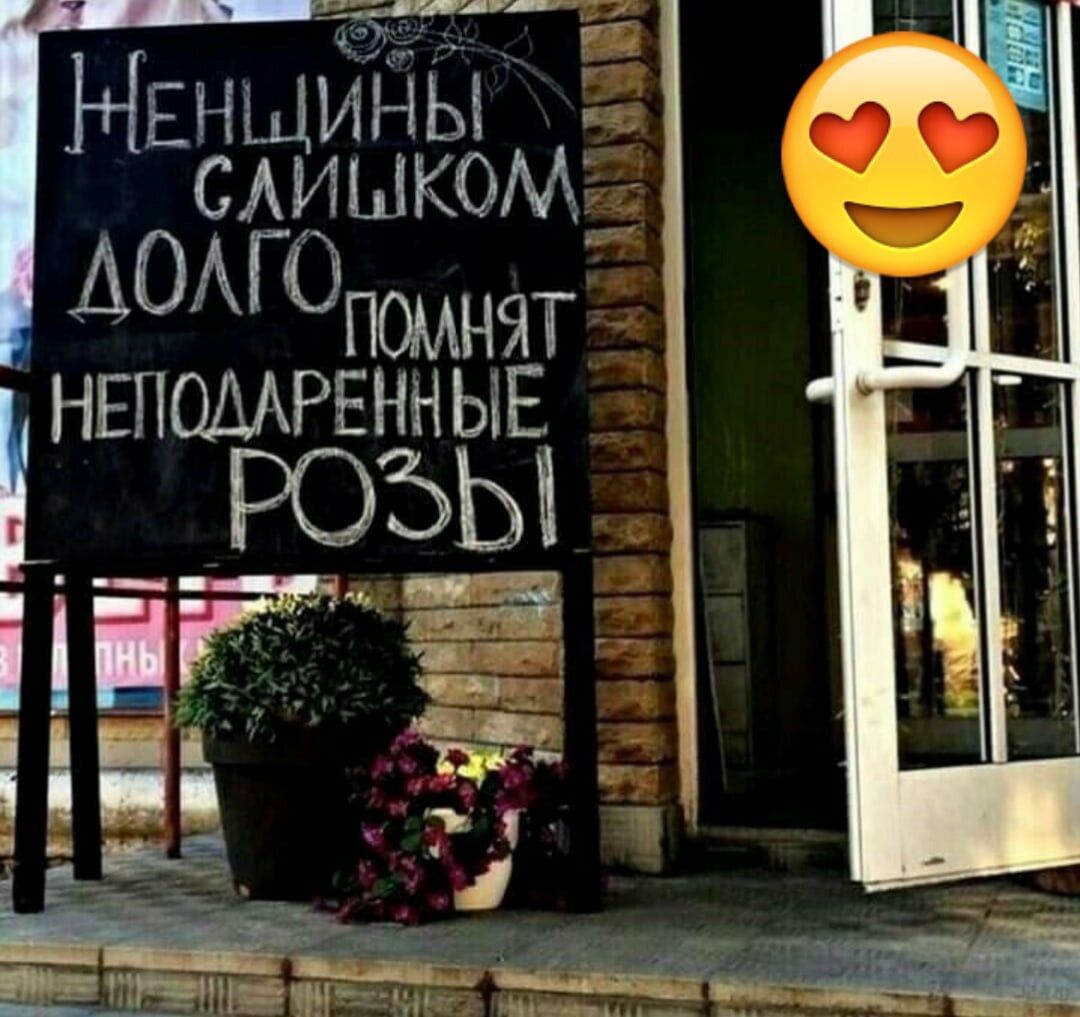 Женщины
слишком
долго
помнят
неподаренные
розы